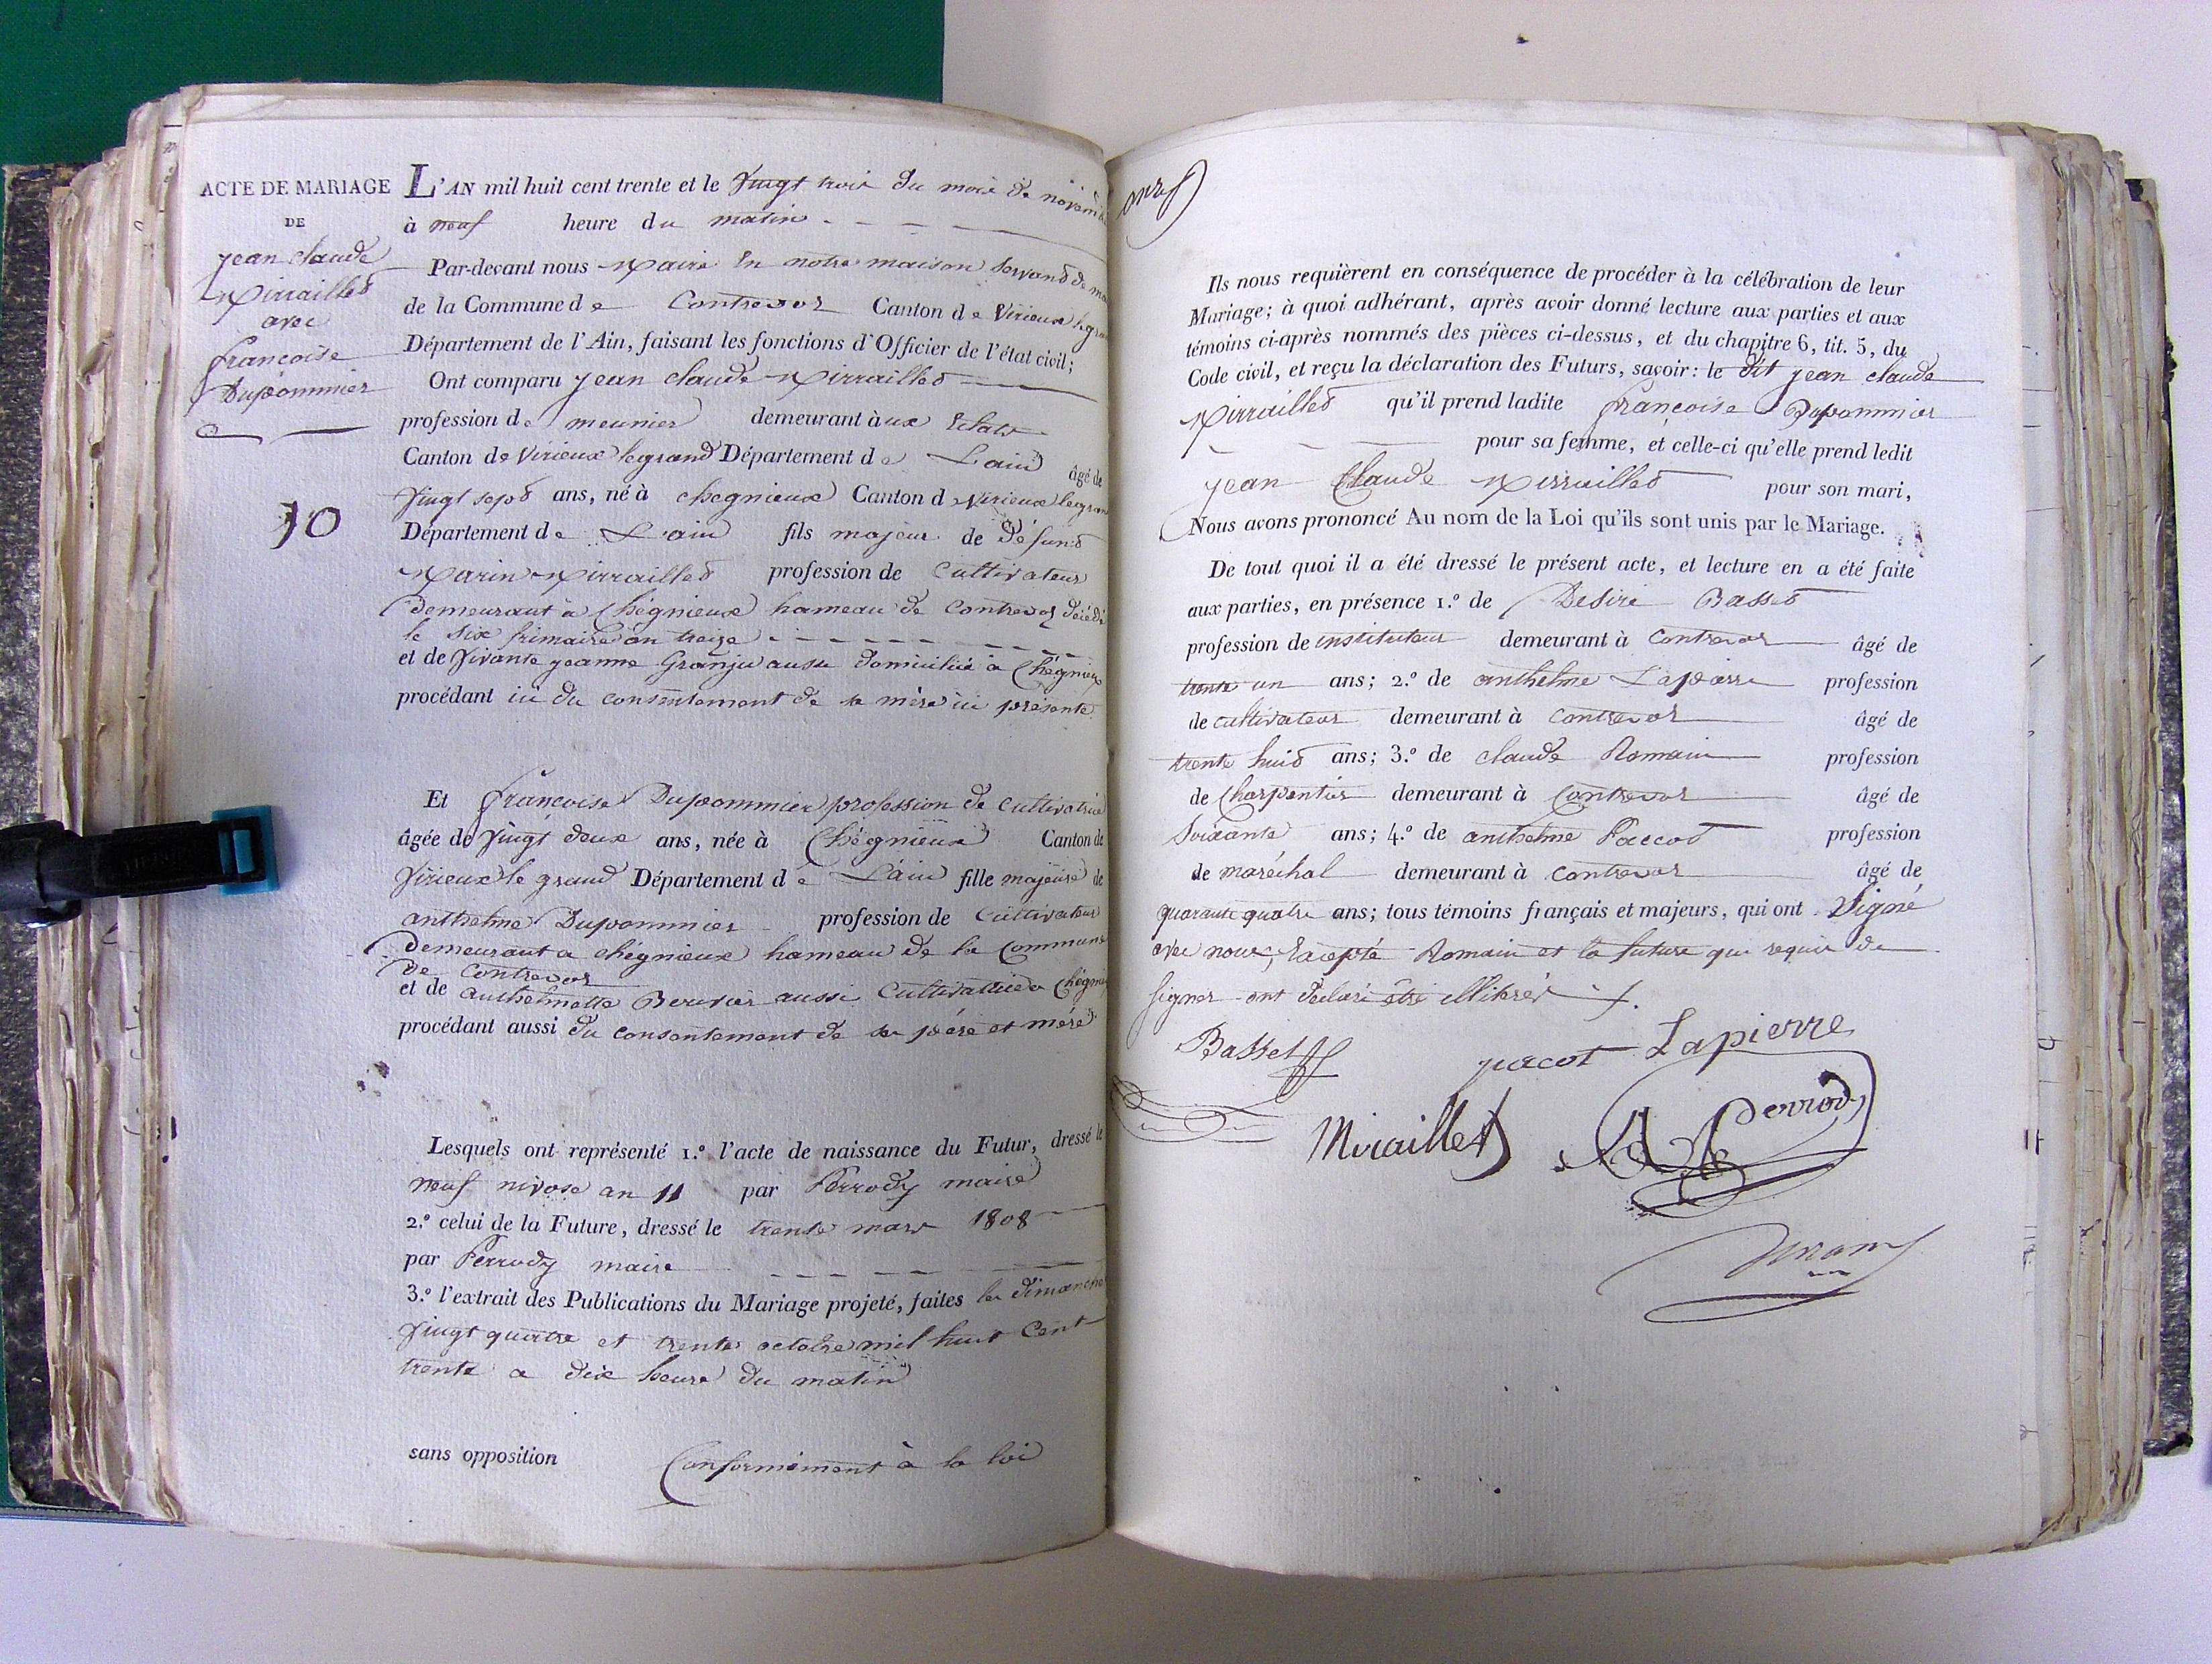 ACTE DE MARIAGE
DE
jean claude
Mirailles
avec
francoise
Dupommier
10
L'AN mil huit cent trente et le vingt trois du mois de novembre
à neuf heure du matin
Par-devant nous Maire En notre maison servant de
de la Commune de Contrevoz Canton de Virieux legrand
Département de l'Ain, faisant les fonctions d'Officier de l'état civil;
Ont comparu jean claude Mirailles
profession de meunier demeurant aux
Canton de Virieux legrand Département de L'ain âgé de
vingt sept ans, né à chegnieux Canton de Virieux legrand
Département de L'ain fils majeur de défunt
Marin Mirailles profession de Cultivateur
demeurant à Chégnieux hameau de Contrevoz décédé
le six frimaire an treize
et de vivante jeanne Granju aussi domiciliée à Chégnieux
procédant ici du consentement de sa mère ici présente
Et françoise Dupommier profession de cultivatrice
âgée de vingt deux ans, née à Chégnieux Canton de
Virieux le grand Département de L'ain fille majeure de
anthelme Dupommier profession de Cultivateur
demeurant a chégnieux hameau de la Commune
de Contrevoz
et de anthelmette aussi Cultivatrice a Chégnieux
procédant aussi du consentement de se père et mère
Lesquels ont représenté 1.º l'acte de naissance du Futur, dressé le
neuf nivose an 11 par Perrody maire
2.º celui de la Future, dressé le trente mars 1808
par Perrody maire
3.º l'extrait des Publications du Mariage projeté, faites les dimanche
vingt quatre et trente octobre mil huit Cent
trente a dix heure du matin
sans opposition Conformément à la loi
Ils nous requièrent en conséquence de procéder à la célébration de leur
Mariage; à quoi adhérant, après avoir donné lecture aux parties et aux
témoins ci-après nommés des pièces ci-dessus, et du chapitre 6, tit. 5, du
Code civil, et reçu la déclaration des Futurs, savoir: le dit jean claude
Mirrailles qu'il prend ladite françoise Dupommier
pour sa femme, et celle-ci qu'elle prend ledit
jean Claude Mirrailles pour son mari,
Nous avons prononcé Au nom de la Loi qu'ils sont unis par le Mariage.
De tout quoi il a été dressé le présent acte, et lecture en a été faite
aux parties, en présence 1.º de Desire Basset
profession de instituteur demeurant à Contrevoz âgé de
trente un ans; 2.º de anthelme Lapierre profession
de cultivateur demeurant à Contrevoz âgé de
trente huit ans; 3.º de claude Romain profession
de Charpentier demeurant à Contrevoz âgé de
Soixante ans; 4.º de anthelme Paccot profession
de maréchal demeurant à Contrevoz âgé de
quarante quatre ans; tous témoins français et majeurs, qui ont Signé
avec nous, Excepté Romain et la future qui requis de
signer ont déclaré être illitérés
Basset pacot Lapierre
Miraillet Perrody